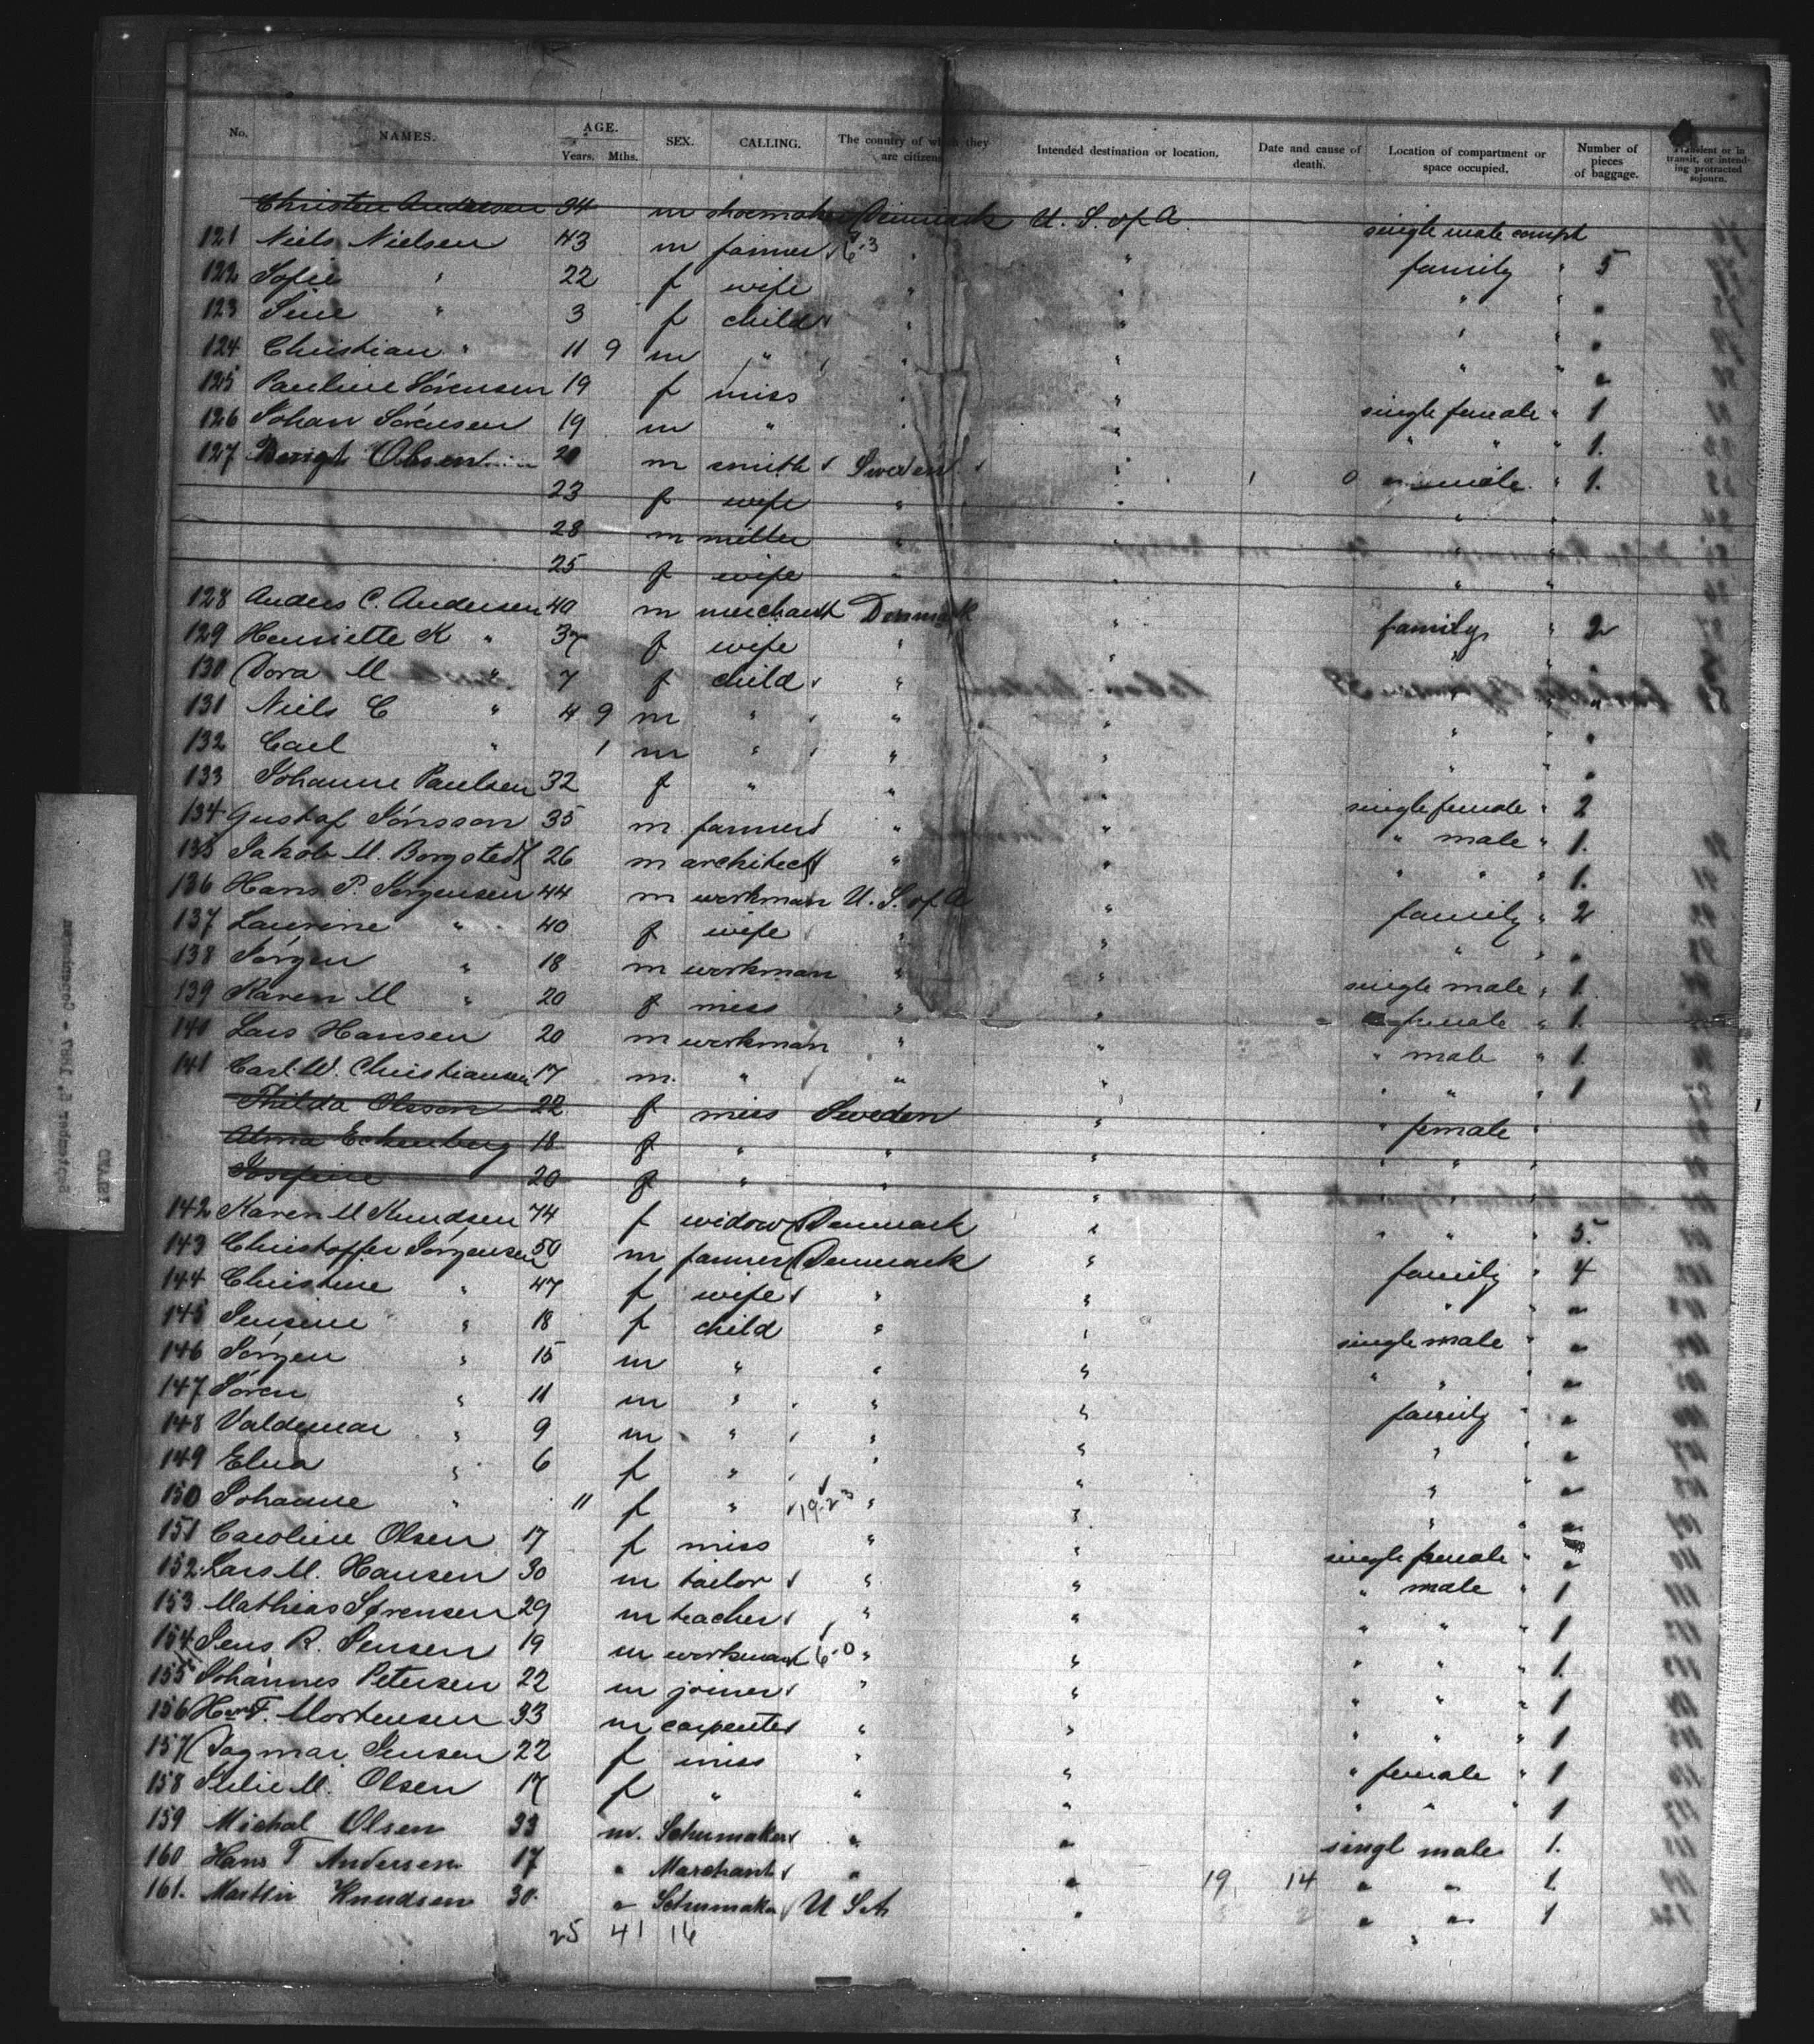 No. NAMES. AGE. Years. Mths. SEX. CALLING. The country of which they are citizens Intended destination or location. Date and cause of death. Location of compartment or space occupied. Number of pieces of baggage. Transient or in transit, or intending protracted sojourn.
Christen Andersen 34 m shoemaker Denmark U. S. of A. single male compt
121 Niels Nielsen 43 m farmer " " family " 5
122 Sofie " 22 f wife " " " " "
123 Sine " 3 f child " " " " "
124 Christian " 11 9 m " " " " " "
125 Pauline Sørensen 19 f miss " " single female " 1
126 Johan Sørensen 19 m " " " " " " 1.
127 Bengt Olsen 20 m smith Sweden " " male " 1.
23 f wife " " " "
28 m miller " " " "
25 f wife " " " "
128 Anders C. Andersen 40 m merchant Denmark " family " 2
129 Henriette K " 37 f wife " " " " "
130 Dora M " 7 f child " " " " "
131 Niels C " 4 9 m " " " " " "
132 Carl " 1 m " " " " " "
133 Johanne Paulsen 32 f " " " single female " 2
134 Gustaf Jönsson 35 m farmer " " " male " 1.
135 Jakob M. Borgstedt 26 m architect " " " " " 1.
136 Hans P. Jørgensen 44 m workman U. S. of A " family " 2
137 Laurine " 40 f wife " " " " "
138 Jørgen " 18 m workman " " single male " 1.
139 Karen M " 20 f miss " " " female " 1.
140 Lars Hansen 20 m workman " " " male " 1.
141 Carl W. Christiansen 17 m. " " " " " " 1
Thilda Olsson 22 f miss Sweden " " female "
Alma Eckenberg 18 f " " " " " "
Josefine 20 f " " " " " "
142 Karen M Knudsen 74 f widow Denmark " " " " 5.
143 Christoffer Jørgensen 50 m farmer Denmark " family " 4
144 Christine " 47 f wife " " " " "
145 Jensine " 18 f child " " single male " "
146 Jørgen " 15 m " " " " " " "
147 Søren " 11 m " " " family " "
148 Valdemar " 9 m " " " " " "
149 Elna " 6 f " " " " " "
150 Johanne " 11 f " " " " " "
151 Caroline Olsen 17 f miss " " single female " "
152 Lars M. Hansen 30 m tailor " " " male " 1
153 Mathias Sørensen 29 m teacher " " " " " 1
154 Jens R. Jensen 19 m workman 6-0 " " " " " 1.
155 Johannes Petersen 22 m joiner " " " " " 1
156 F. Mortensen 33 m carpenter " " " " " 1
157 Dagmar Jensen 22 f miss " " " female " 1
158 Julie M. Olsen 17 f " " " " " " 1
159 Michal Olsen 33 m. Schumaker " " singl male 1.
160 Hans T Andersen 17 " Marchant " " 19 14 " " 1.
161. Martin Knudsen 30. " Schumaker U S A " " " 1
25 41 16